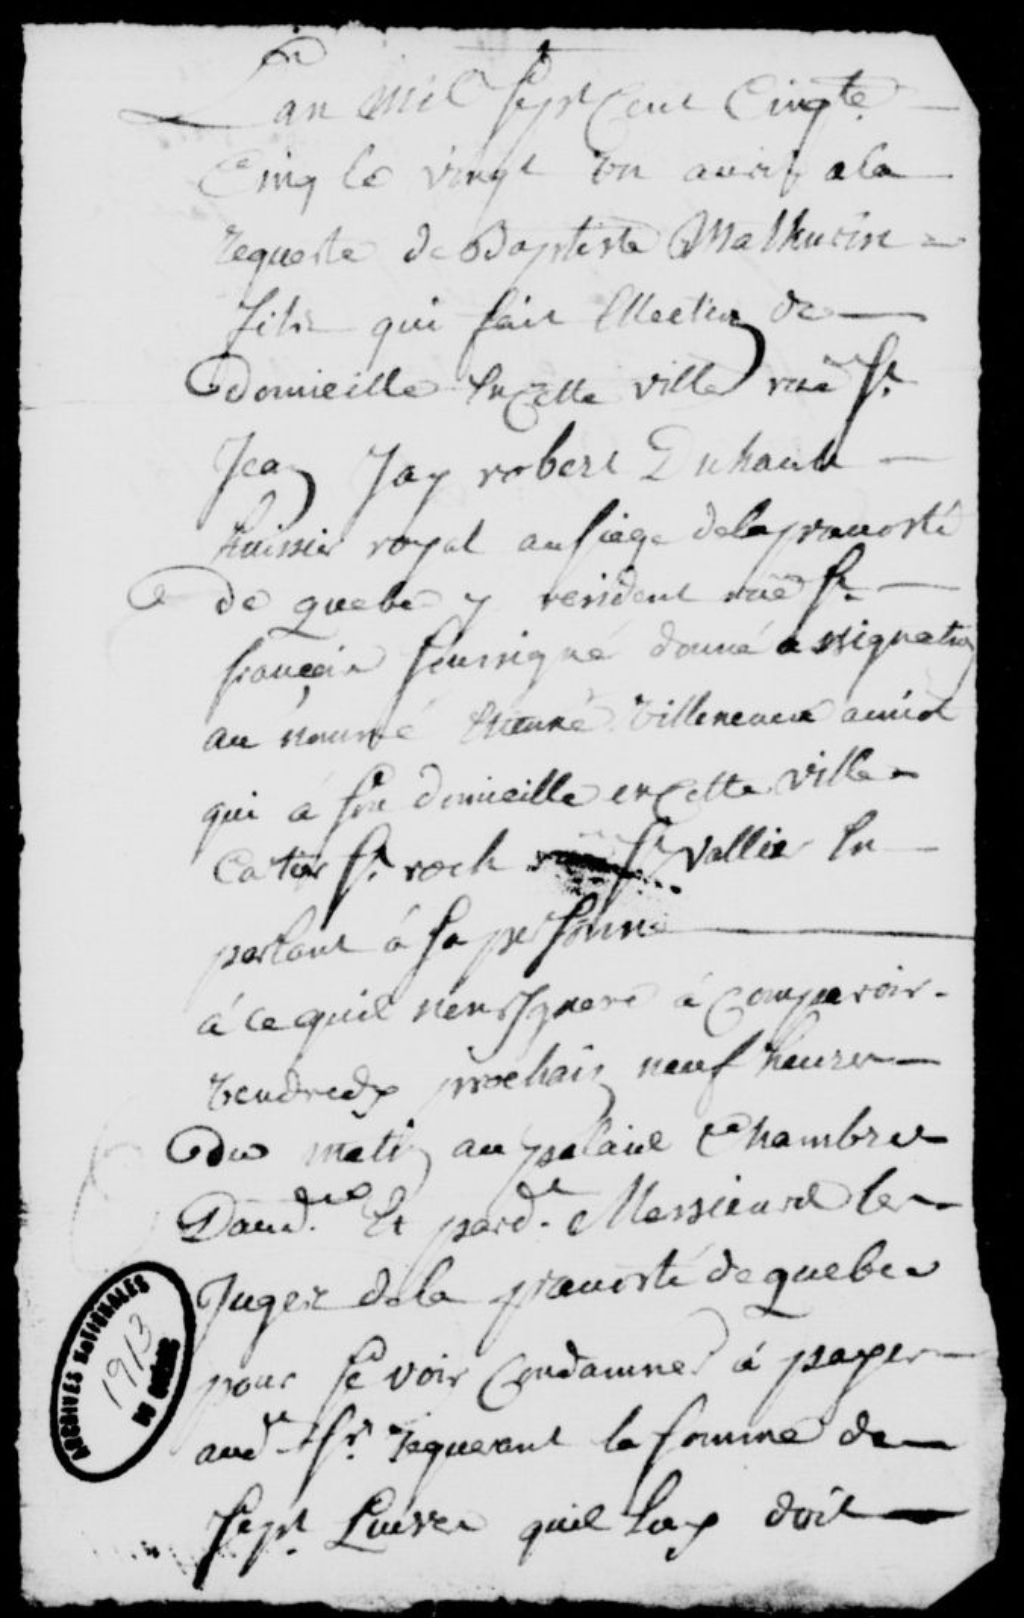 Lan Mil Sept Cent Cinqte
Cinq le vingt un avril a la
requeste de Baptiste Mathurin
fils qui fait Ellection de
domicille En Cette ville rue St
Jean Jay robert Duhault
huissier royal au siege de la prevosté
de quebec y resident rue St
françois soussigné donné assignation
au nommé Villeneuve amiot
qui a son domicille en Cette ville
St rock St vallier En
parlant à sa personne
à ce quil à Comparoir
vendredy prochain neuf heures
du matin au palaix Chambre
Daud.ce Et pard.t Messieurs les
Juges de la prevosté de quebec
pour se voir Condamner à payer
aud.t Sr requerant la somme de
sept Livres quil luy doit
ARCHIVES NATIONALES
1913
DU QUÉBEC